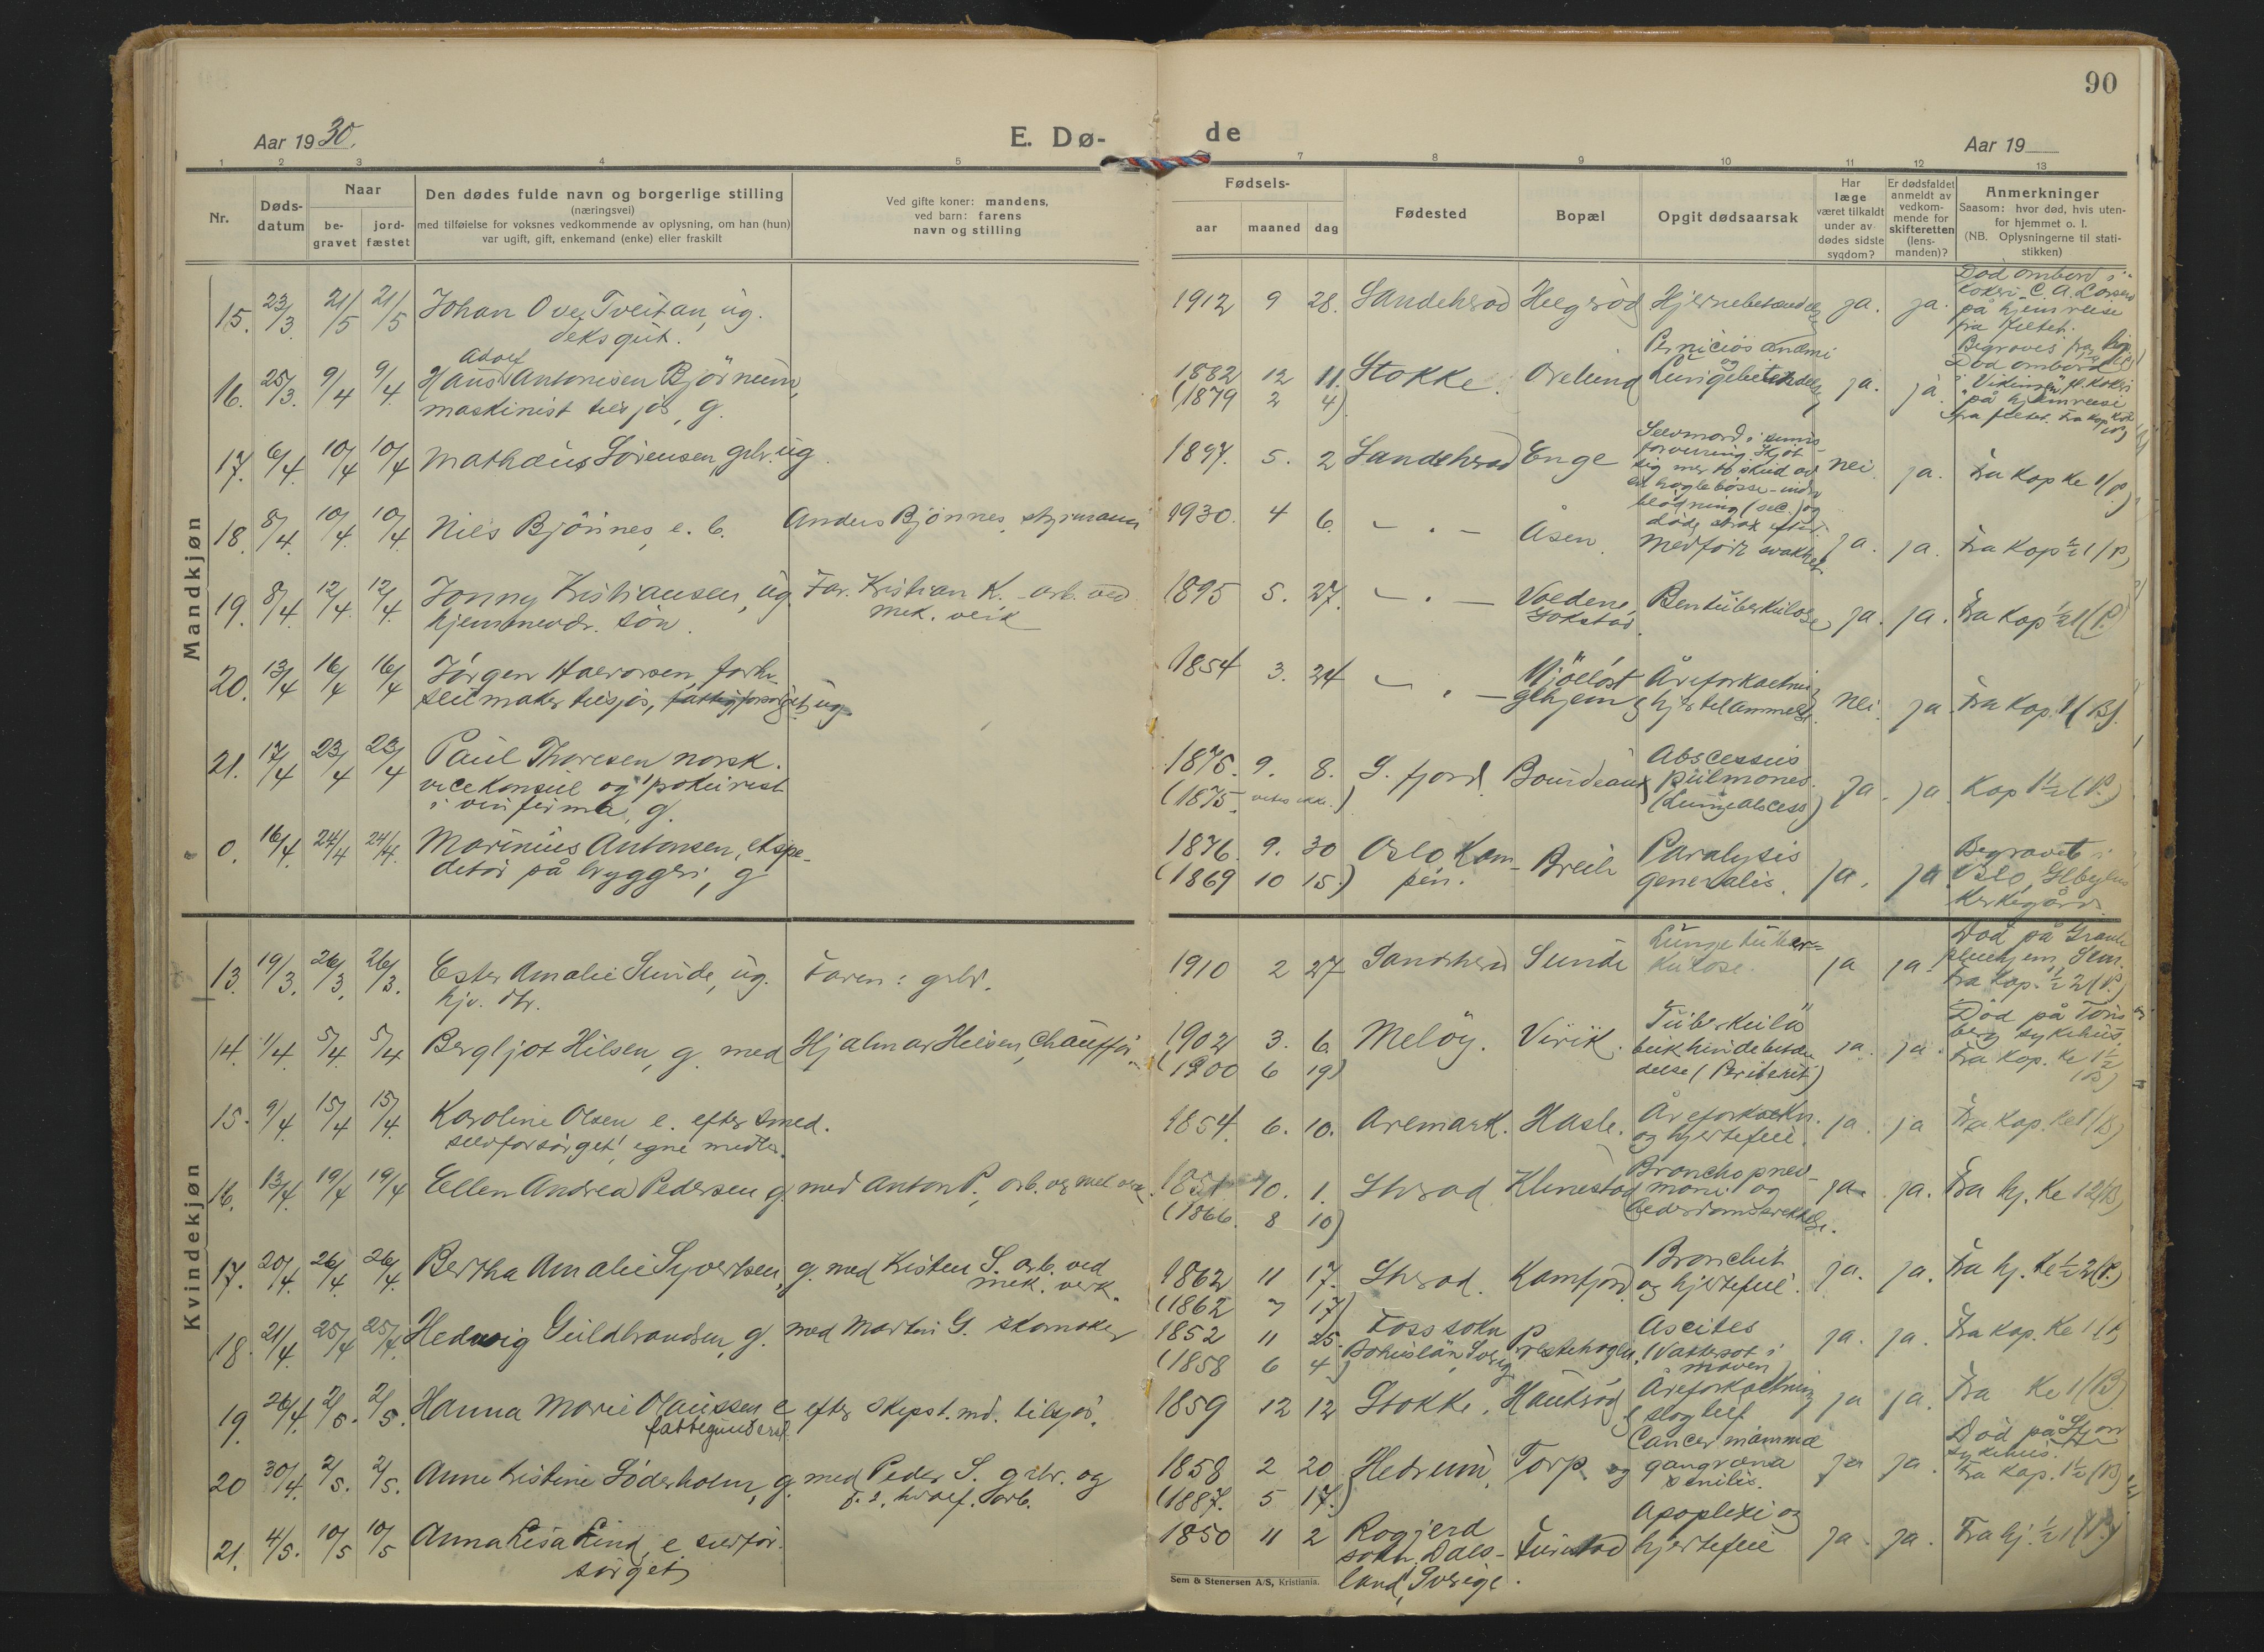 90
Aar 1930.
E. Dø-
de
Aar 19
1 2 3 4 5 7 8 9 10 11 12 13
Nr.
Døds-
datum
Naar
be-
gravet
jord-
fæstet
Den dødes fulde navn og borgerlige stilling
(næringsvei)
med tilføielse for voksnes vedkommende av oplysning, om han (hun)
var ugift, gift, enkemand (enke) eller fraskilt
Ved gifte koner: mandens,
ved barn: farens
navn og stilling
Fødsels-
aar maaned dag
Fødested
Bopæl
Opgit dødsaarsak
Har
læge
været tilkaldt
under av-
dødes sidste
sygdom?
Er dødsfaldet
anmeldt av
vedkom-
mende for
skifteretten
(lens-
manden)?
Anmerkninger
Saasom: hvor død, hvis uten-
for hjemmet o. l.
(NB. Oplysningerne til stati-
stikken)
Mandkjøn
15. 23/3 21/5 21/5 Johan Ove Tveitan, ug.
deksgut.
1912 9 28. Sandeherad Helgerød ja. ja.
Død ombord i
kokeri C. A. Larsen
på hjemreise
fra feltet.
16. 25/3. 9/4 9/4. Hans Adolf Antonisen Björnum,
maskinist tilsjøs, g.
1882 12 11. Stokke. Orelund
(1879 2 4)
Perniciøs anæmi
og
Lungebetændelse ja. ja.
Død ombord
på hjemreise
fra feltet.
17. 6/4. 10/4 10/4 Mathæus Sörensen, gbr. ug.
1897. 5. 2 Sandeherad Enge
Selvmord i sinns-
forvirring. Skjöt
sig med to skud av
en haglebösse - indre
blödning (sec.) og
döde strax efter.
nei. ja. Fra Kap ke 1 (P.)
18. 8/4. 10/4. 10/4. Nils Bjönnes, e. b. Anders Bjönnes, styrmann
1930. 4 6. - . - Åsen. Medfödt svakhet. ja. ja. Fra Kap ½ 1 (P)
19. 8/4. 12/4. 12/4. Jonny Kristiansen, ug. Far. Kristian K. - arb. ved
hjemmevær. sön. mek. verk
1895 5. 27. - . - Vøldene,
Gokstad. Bentuberkulose ja. ja. Fra Kap ½ 1 (P.)
20. 13/4 16/4 16/4 Jörgen Halvorsen, forhv.
seilmaker tilsjös, fattigforsörget, ug.
1854 3. 24 - . - Mjölløst
gl.hjem Åreforkalkning
& hjertelammelse. nei. ja. Fra Kap. 1 (B).
21. 17/4 23/4 23/4 Paul Thoresen norsk.
vicekonsul og prokurist
i vinfirma, g.
1875. 9. 8. S. fjord. Bourdeaux
(1875. vites ikke.)
Abscessus
pulmones.
(Lungeabcess) ja. ja. Kap 1½ (P.)
0. 16/4. 24/4 24/4. Marinius Antonsen, ekspe-
ditör på bryggeri, g
1876. 9. 30 Oslo, Kam-
pen. Breili
(1869 10 15.)
Paralysis
generalis. ja. ja
Begravet i
Oslo,
kirkegård.
Kvindekjøn
13. 19/3. 26/3. 26/3. Ester Amalie Sunde, ug. Faren: gbr.
hjv. dtr.
1910 2 27 Sandeherad Sunde Lungetuber-
kulose. ja ja.
Død på Granli
pleiehjem, Sem.
Fra Kap. ½ 2 (P.)
14. 1/4. 5/4. 5/4 Bergljot Hilsen, g. med Hjalmar Hilsen, Chauffør.
1902 3. 6. Meløy. Virik.
(1900 6 19)
Tuberkuløs
bukhindebetæn-
delse (Peritonit) ja. ja.
Død på Tøns-
berg sykehus.
Fra Kap. ke 1½
(B)
15. 9/4. 15/4 15/4. Karoline Olsen e. efter smed.
selvforsörget, egne midler.
1854. 6. 10. Aremark. Hasle. Åreforkalkn.
og hjertefeil. ja. ja Fra Kap. ke 1 (B)
16. 13/4. 19/4 19/4 Ellen Andrea Pedersen g. med Anton P., arb. ved mek. verk.
10. 1. Shrad Klinestad
(1866. 8 10)
Bronchopnev-
moni og
alderdomssvekkelse. ja. ja. Fra hj. ke 1 2 (B)
17. 20/4. 26/4. 26/4. Bertha Amalie Syvertsen, g. med Kristen S. arb. ved
mek. verk.
1862 11 17. Shrad. Kamfjord. Bronchit
og hjertefeil. ja. ja. Fra hj. ke ½ 2 (P.)
(1862 7 17)
18. 21/4. 25/4 25/4. Hedevig Guldbrandsen, g. med Martin G. skomaker
1852 11 25. Foss sokn
Bohuslän, Sverig. Prestehagen.
(1858 6 4)
Ascites
(Vattersot i
maven) ja. ja. Fra Kap. ke 1 (P)
19. 26/4. 2/5. 2/5. Hanna Marie Olaussen e. efter skipst.md. tilsjös.
fattigunderst.
1859 12 12 Stokke. Haukerød Åreforkalkning
& slagtilf. ja ja. Fra ke 1 (B)
20 30/4. 2/5. 2/5. Anne Kristine Söderholm, g. med Peder S. gbr. og
f. s. hvalf. arb.
1858 2 20 Hedrum. Torp
(1887. 5 17.)
Cancer mammæ
og gangræna
senilis. ja ja.
Død på
sykehus.
Fra Kap. 1½ (B)
21. 4/5. 10/5 10/5 Anna Lisa Lind, e. selvfor-
sörget
1850 11 2 Rogjerd
sokn, Dals-
land, Sverige. Furustad
Apoplexi og
hjertefeil ja. ja. Fra hj. ½ 1 (P.)
Sem & Stenersen A/S, Kristiania.